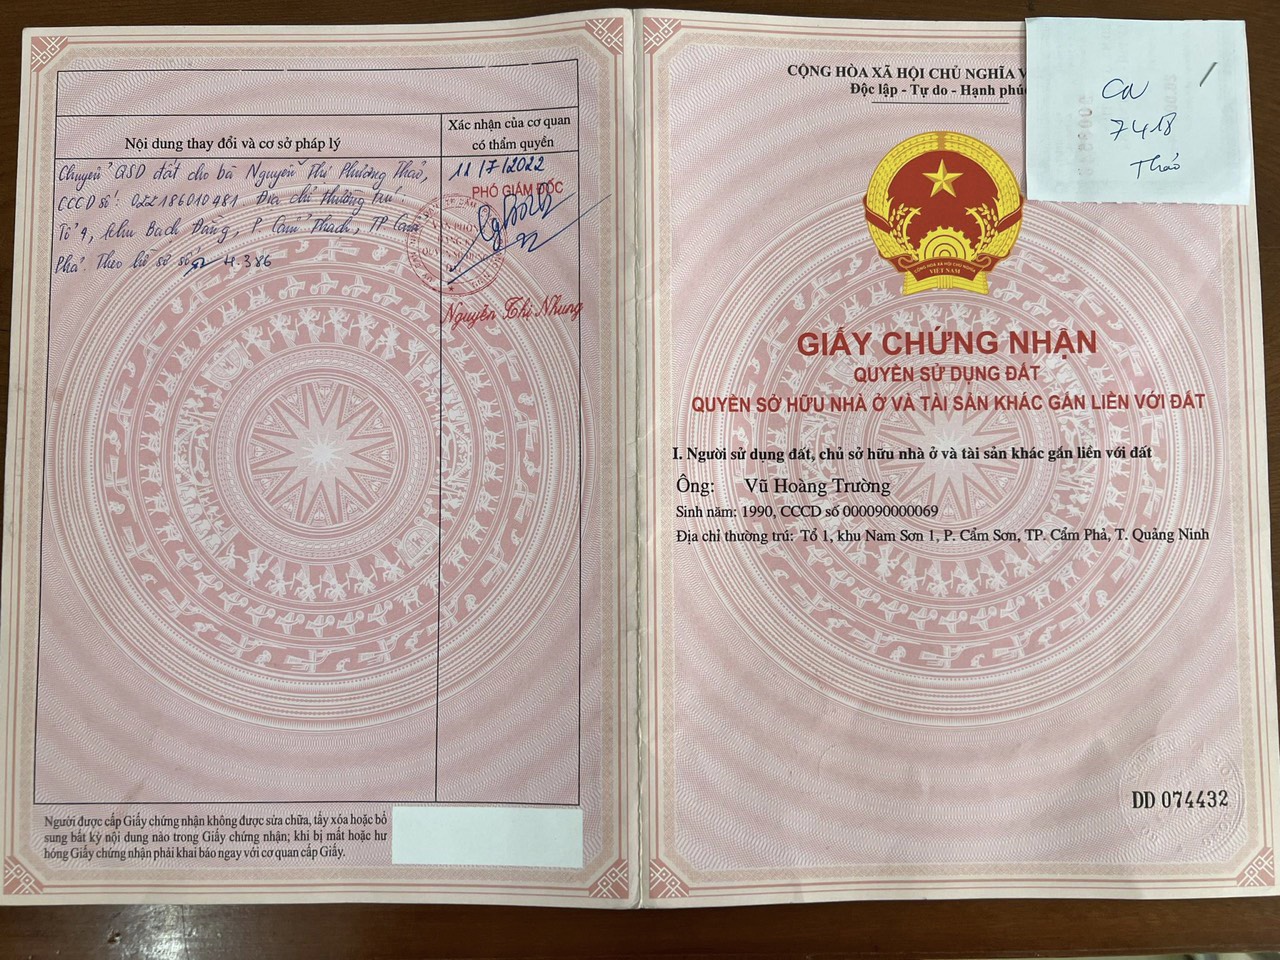 Nội dung thay đổi và cơ sở pháp lý
Xác nhận của cơ quan
có thẩm quyền
Chuyển QSD đất cho bà Nguyễn Thị Phương Thảo,
CCCD số: 022186010481. Địa chỉ thường trú:
Tổ 4, khu Bạch Đằng, P. Cẩm Thạch, TP Cẩm
Phả. Theo hồ sơ số 4.386
11/7/2022
PHÓ GIÁM ĐỐC
Nguyễn Thị Nhung
Người được cấp Giấy chứng nhận không được sửa chữa, tẩy xóa hoặc bổ
sung bất kỳ nội dung nào trong Giấy chứng nhận; khi bị mất hoặc hư
hỏng Giấy chứng nhận phải khai báo ngay với cơ quan cấp Giấy.
CỘNG HÒA XÃ HỘI CHỦ NGHĨA V
Độc lập - Tự do - Hạnh phúc
7418
Thảo
CỘNG HÒA XÃ HỘI CHỦ NGHĨA
VIỆT NAM
GIẤY CHỨNG NHẬN
QUYỀN SỬ DỤNG ĐẤT
QUYỀN SỞ HỮU NHÀ Ở VÀ TÀI SẢN KHÁC GẮN LIỀN VỚI ĐẤT
I. Người sử dụng đất, chủ sở hữu nhà ở và tài sản khác gắn liền với đất
Ông: Vũ Hoàng Trường
Sinh năm: 1990, CCCD số 000090000069
Địa chỉ thường trú: Tổ 1, khu Nam Sơn 1, P. Cẩm Sơn, TP. Cẩm Phả, T. Quảng Ninh
DD 074432